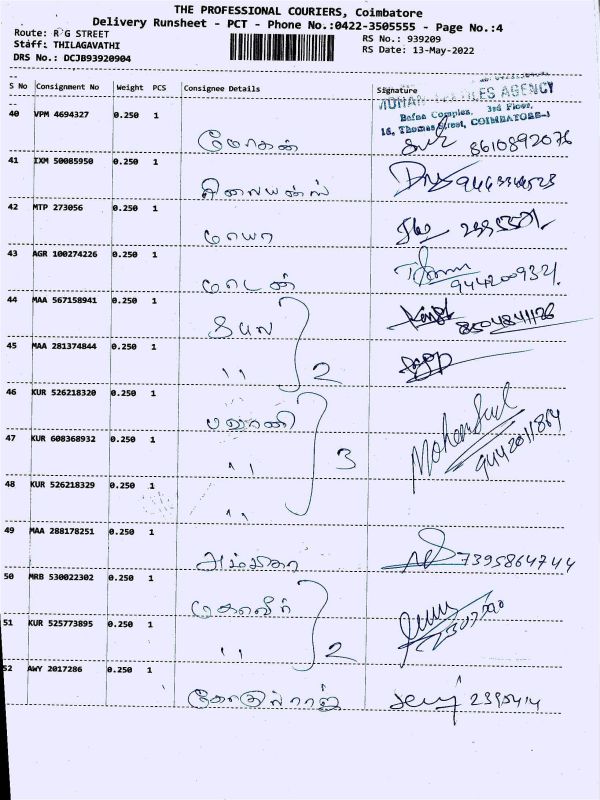 THE PROFESSIONAL COURIERS, Coimbatore
Delivery Runsheet - PCT - Phone No.:0422-3505555 - Page No.:4
Route: R G STREET
RS No.: 939209
Staff: THILAGAVATHI
RS Date: 13-May-2022
DRS No.: DCJB93920904
S No Consignment No Weight PCS Consignee Details Signature
AGENCY
Bafna Complex, 3rd Floor,
16, Thomas Street, COIMBATORE-1
40 VPM 4694327 0.250 1
மோகன் 8610892076
41 IXM 50085950 0.250 1
ரிலையன்ஸ்
42 MTP 273056 0.250 1
மாயா
43 AGR 100274226 0.250 1
மாடன்
44 MAA 567158941 0.250 1
தீபம் 8504841126
45 MAA 281374844 0.250 1
" 2
46 KUR 526218320 0.250 1
பவானி
47 KUR 608368932 0.250 1
" 3 9442011864
48 KUR 526218329 0.250 1
"
49 MAA 288178251 0.250 1
அம்பிகா 7395864744
50 MRB 530022302 0.250 1
51 KUR 525773895 0.250 1
" 2
52 AWY 2017286 0.250 1
கோகுல்ராஜ்